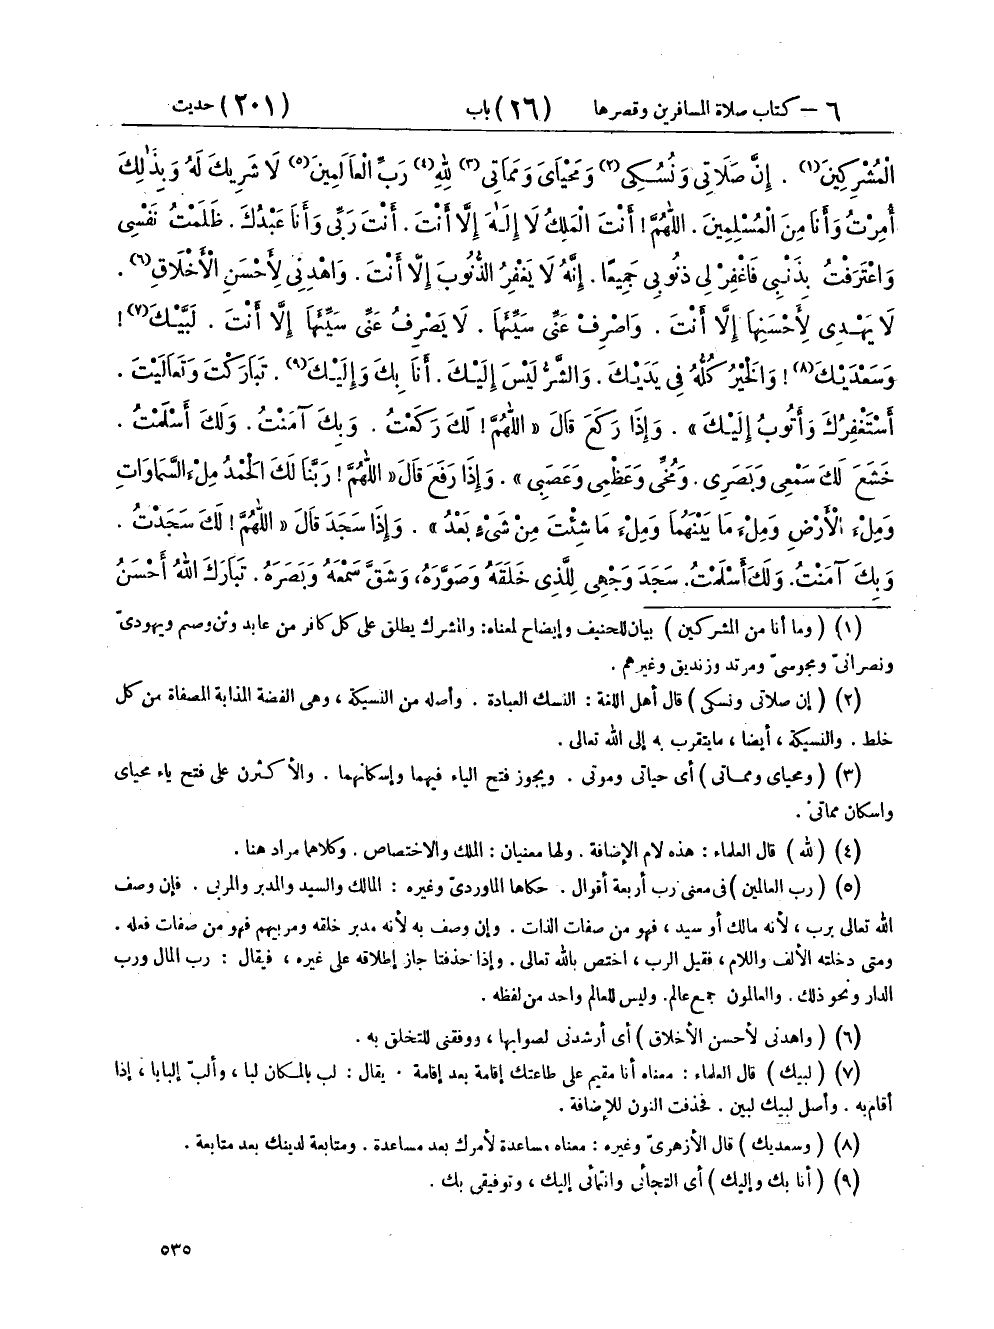 ٦ – كتاب صلاة المسافرين وقصرها (٢٦) باب (٢٠١) حديث
الْمُشْرِكِينَ(١) . إِنَّ صَلَاتِى وَنُسُكِى(٢) وَمَحْيَاىَ وَمَمَاتِى(٣) لِلّٰهِ(٤) رَبِّ الْعَالَمِينَ(٥) لَا شَرِيكَ لَهُ وَبِذَٰلِكَ
أُمِرْتُ وَأَنَا مِنَ الْمُسْلِمِينَ . اللّٰهُمَّ ! أَنْتَ الْمَلِكُ لَا إِلَـٰهَ إِلَّا أَنْتَ . أَنْتَ رَبِّى وَأَنَا عَبْدُكَ . ظَلَمْتُ نَفْسِى
وَاعْتَرَفْتُ بِذَنْبِى فَاغْفِرْ لِى ذُنُوبِى جَمِيعًا . إِنَّهُ لَا يَغْفِرُ الذُّنُوبَ إِلَّا أَنْتَ . وَاهْدِنِى لِأَحْسَنِ الْأَخْلَاقِ(٦) .
لَا يَهْدِى لِأَحْسَنِهَا إِلَّا أَنْتَ . وَاصْرِفْ عَنِّى سَيِّئَهَا . لَا يَصْرِفُ عَنِّى سَيِّئَهَا إِلَّا أَنْتَ . لَبَّيْكَ(٧) !
وَسَعْدَيْكَ(٨) ! وَالْخَيْرُ كُلُّهُ فِى يَدَيْكَ . وَالشَّرُّ لَيْسَ إِلَيْكَ . أَنَا بِكَ وَإِلَيْكَ(٩) . تَبَارَكْتَ وَتَعَالَيْتَ .
أَسْتَغْفِرُكَ وَأَتُوبُ إِلَيْكَ » . وَإِذَا رَكَعَ قَالَ « اللّٰهُمَّ ! لَكَ رَكَعْتُ . وَبِكَ آمَنْتُ . وَلَكَ أَسْلَمْتُ .
خَشَعَ لَكَ سَمْعِى وَبَصَرِى . وَمُخِّى وَعَظْمِى وَعَصَبِى » . وَإِذَا رَفَعَ قَالَ « اللّٰهُمَّ ! رَبَّنَا لَكَ الْحَمْدُ مِلْءَ السَّمَاوَاتِ
وَمِلْءَ الْأَرْضِ وَمِلْءَ مَا بَيْنَهُمَا وَمِلْءَ مَا شِئْتَ مِنْ شَىْءٍ بَعْدُ » . وَإِذَا سَجَدَ قَالَ « اللّٰهُمَّ ! لَكَ سَجَدْتُ .
وَبِكَ آمَنْتُ . وَلَكَ أَسْلَمْتُ . سَجَدَ وَجْهِى لِلَّذِى خَلَقَهُ وَصَوَّرَهُ، وَشَقَّ سَمْعَهُ وَبَصَرَهُ . تَبَارَكَ اللهُ أَحْسَنُ
(١) ( وما أنا من المشركين ) بيان للحنيف وإيضاح لمعناه: والمشرك يطلق على كل كافر من عابد وثن وصنم ويهودىّ
ونصرانىّ ومجوسىّ ومرتد وزنديق وغيرهم .
(٢) ( إن صلاتى ونسكى ) قال أهل اللغة : النسك العبادة . وأصله من النسيكة ، وهى الفضة المذابة المصفاة من كل
خلط . والنسيكة ، أيضا ، ما يتقرب به إلى الله تعالى .
(٣) ( ومحياى ومماتى ) أى حياتى وموتى . ويجوز فتح الياء فيهما وإسكانهما . والأكثرن على فتح ياء محياى
واسكان مماتىْ .
(٤) ( لله ) قال العلماء : هذه لام الإضافة . ولها معنيان : الملك والاختصاص . وكلاهما مراد هنا .
(٥) ( رب العالمين ) فى معنى رب أربعة أقوال . حكاها الماوردىّ وغيره : المالك والسيد والمدبر والمربى . فإن وصف
الله تعالى برب ، لأنه مالك أو سيد ، فهو من صفات الذات . وإن وصف به لأنه مدبر خلقه ومربيهم فهو من صفات فعله .
ومتى دخلته الألف واللام ، فقيل الرب ، اختص بالله تعالى . وإذا حذفتا جاز إطلاقه على غيره ، فيقال : رب المال ورب
الدار ونحو ذلك . والعالمون جمع عالم. وليس للعالم واحد من لفظه .
(٦) ( واهدنى لأحسن الأخلاق ) أى أرشدنى لصوابها ، ووفقنى للتخلق به .
(٧) ( لبيك ) قال العلماء : معناه أنا مقيم على طاعتك إقامة بعد إقامة . يقال : لب بالمكان لبا ، وألبّ إلبابا ، إذا
أقام به . وأصل لبيك لبين . فحذفت النون للإضافة .
(٨) ( وسعديك ) قال الأزهرىّ وغيره : معناه مساعدة لأمرك بعد مساعدة . ومتابعة لدينك بعد متابعة .
(٩) ( أنا بك وإليك ) أى التجأئى وانتمائى إليك ، وتوفيقى بك .
٥٣٥